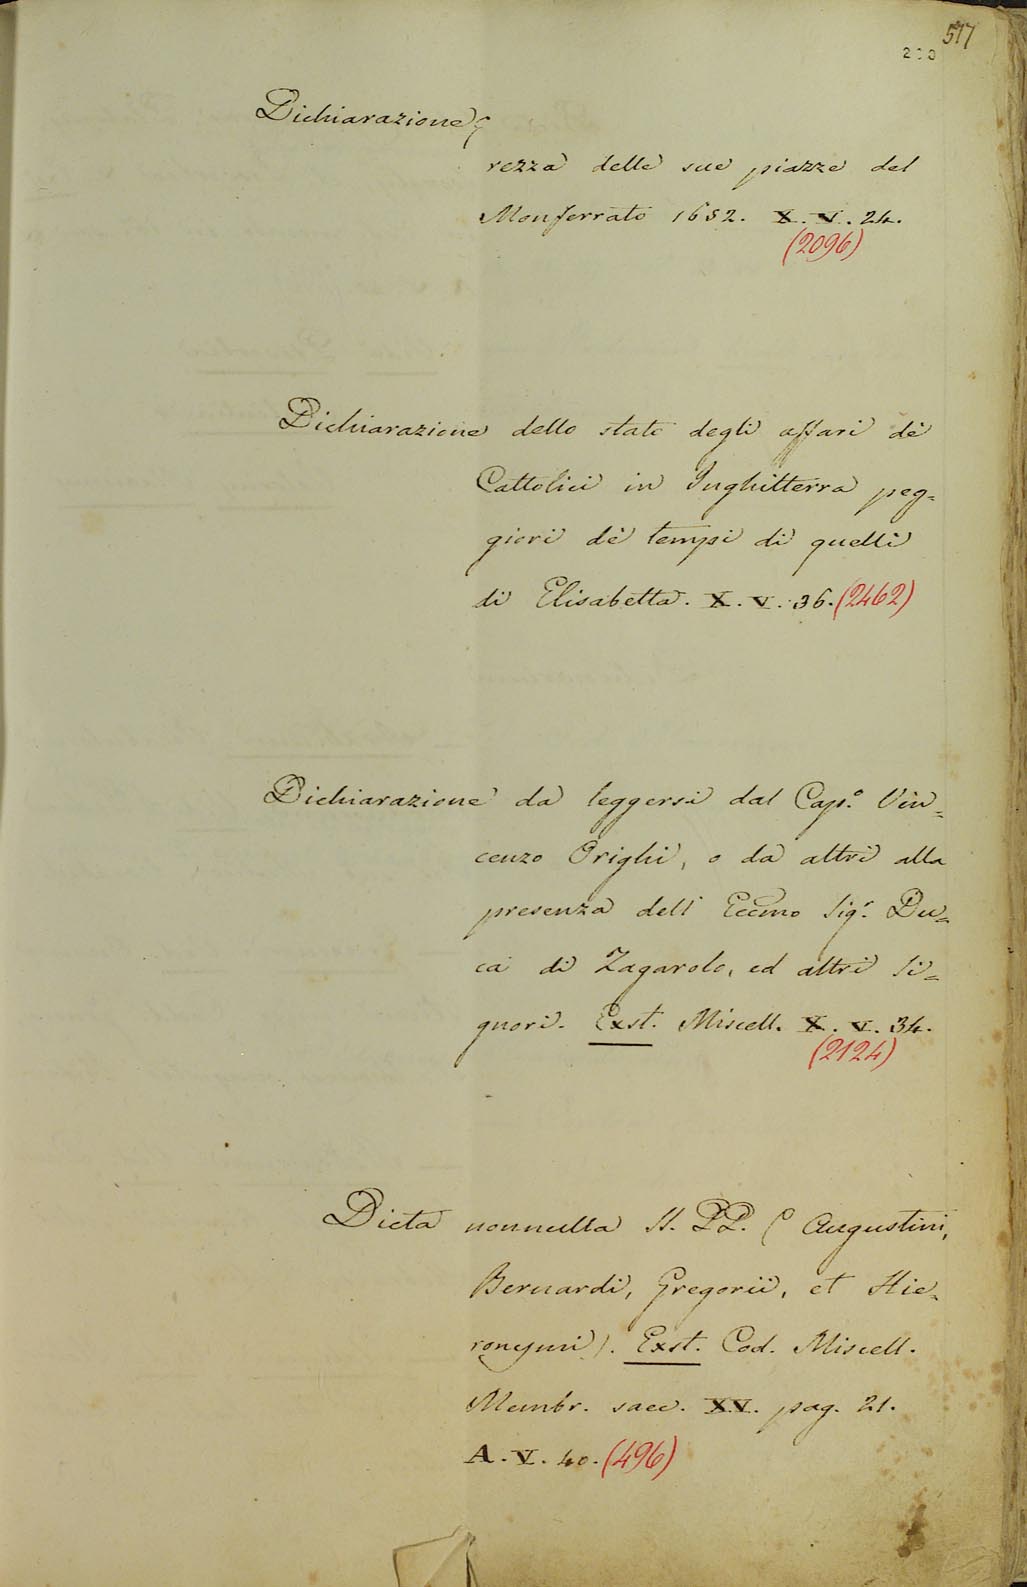 517
Dichiarazione
rezza delle sue piazze del
Monferrato 1652. X. V. 24.
(2096)
Dichiarazione dello stato degli affari dè
Cattolici in Inghilterra peg=
giori dè tempi di quelli
di Elisabetta. X. V. 36. (2462)
Dichiarazione da leggersi dal Cap.º Vin=
cenzo Orighi, o da altri alla
presenza dell' Eccmo Sigr. Du=
ca di Zagarolo, ed altri Si=
gnori. Exst. Miscell. X. V. 34.
(2124)
Dicta nonnulla SS. PP. (Augustini,
Bernardi, Gregorii, et Hie=
ronymi). Exst. Cod. Miscell.
Membr. saec. XV. pag. 21.
A. V. 40. (496)